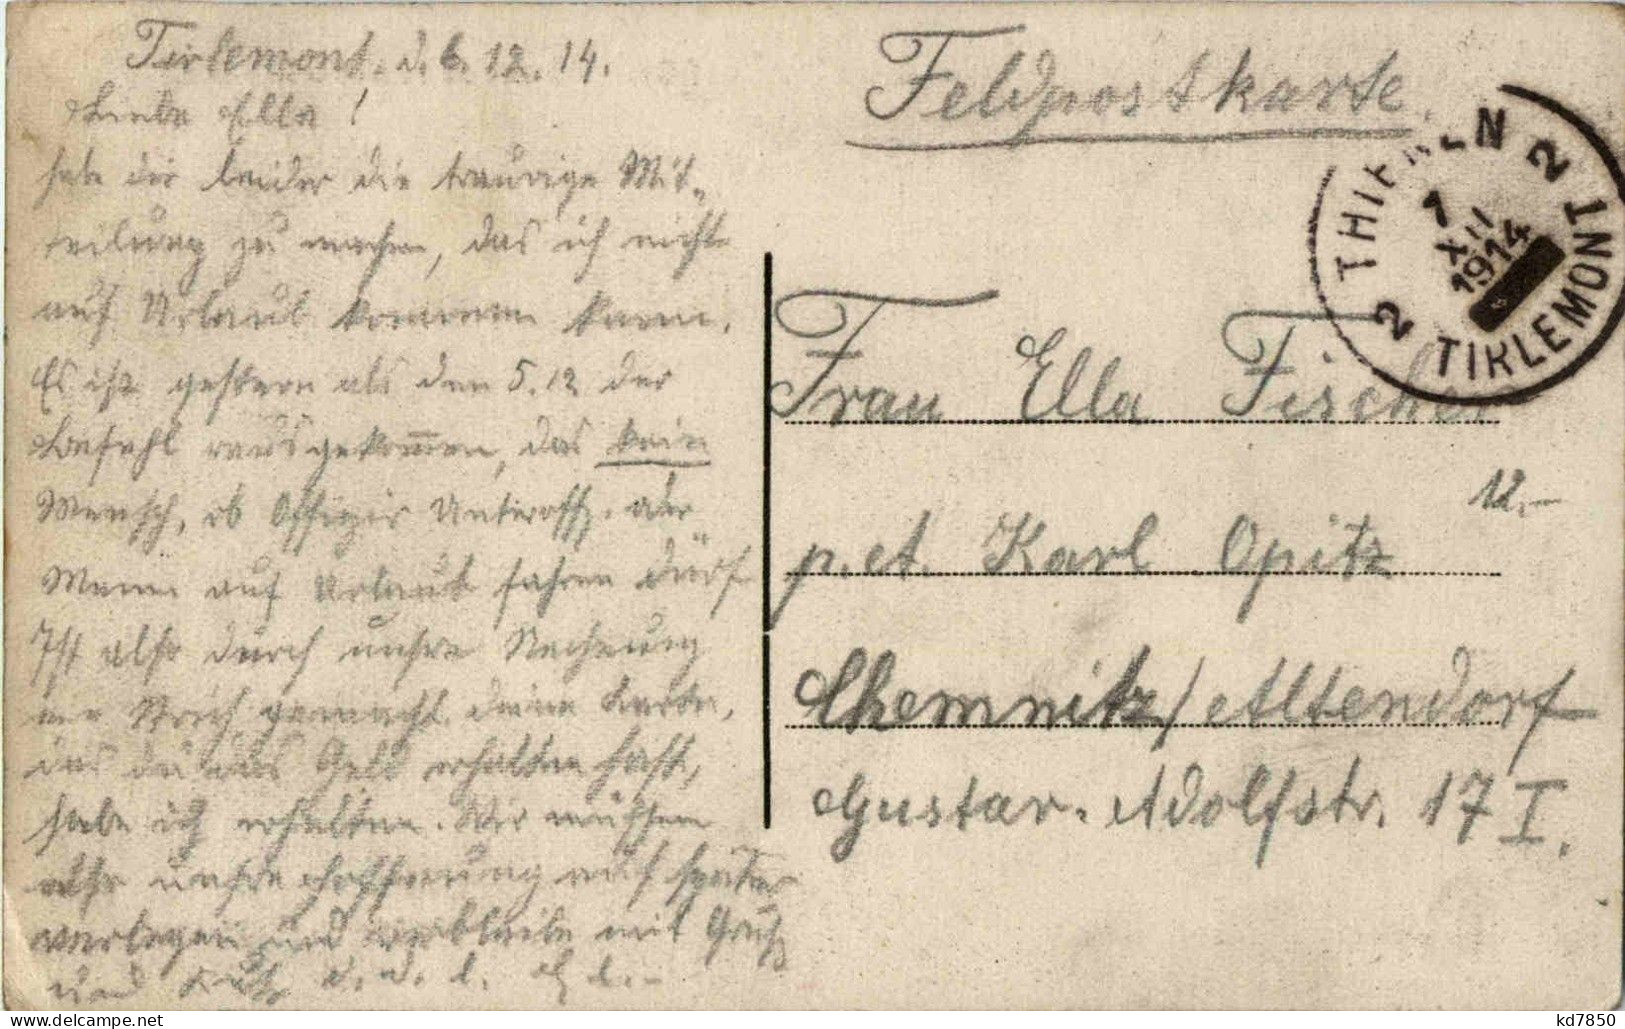 Tirlemont, d. 6. 12. 14.
Liebe Ella!
habe dir leider die traurige Mit-
teilung zu machen, das ich nicht
auf Urlaub kommen kann.
Es ist gestern als den 5.12 der
Befehl rausgekom̅en, das kein
Mensch, ob Offizir Unteroffz. oder
Mann auf Urlaub fahren dürf
Ist also durch unsre Rechnung
ein Strich gemacht. deine Karte,
das du das Geld erhalten hast,
habe ich erhalten. Wir müssen
also unsre Hoffnung auf später
verlegen und verbleibe mit Gruß
und Kuß d. d. l.
Feldpostkarte.
THIENEN 2
7
XII
1914
2 TIRLEMONT
Frau Ella Fischer
12.-
p. et. Karl Opitz
Chemnitz/Altendorf
Gustav-Adolfstr. 17 I.
kd7850